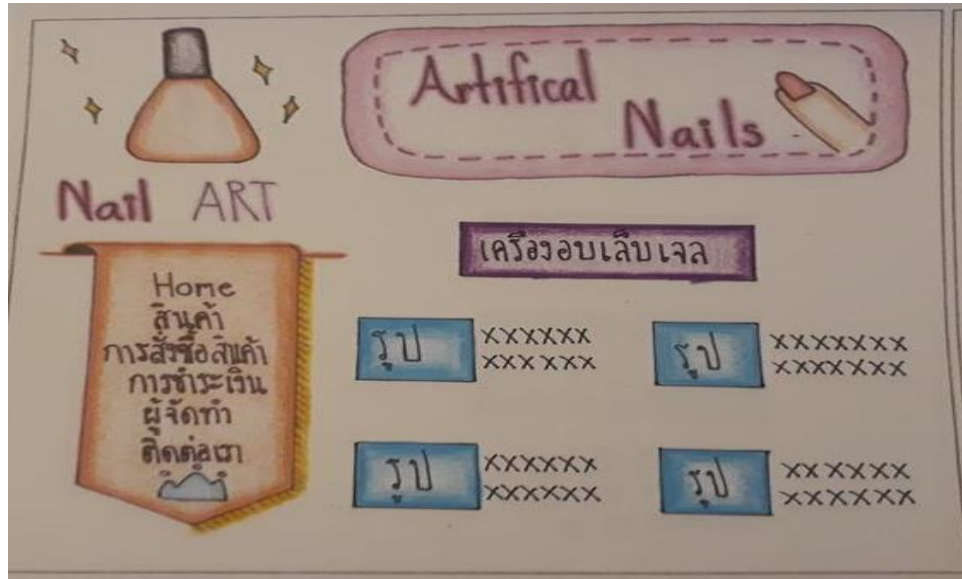 Artifical
Nails
Nail ART
Home
สินค้า
การสั่งซื้อสินค้า
การชำระเงิน
ผู้จัดทำ
ติดต่อเรา
เครื่องอบเล็บเจล
รูป xxxxxx
xxxxxx
รูป xxxxxxx
xxxxxxx
รูป xxxxxx
xxxxxx
รูป xxxxxx
xxxxxxx